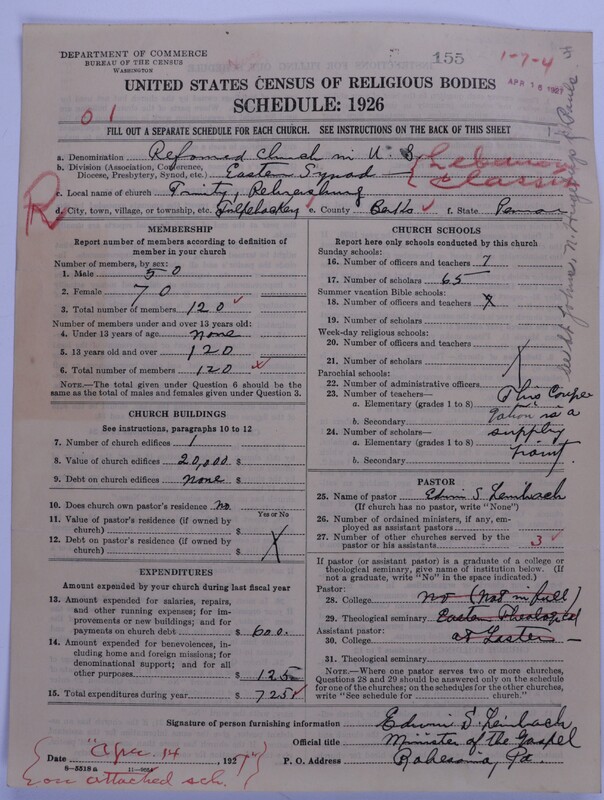 DEPARTMENT OF COMMERCE
BUREAU OF THE CENSUS
WASHINGTON
155
1-7-4
APR 16 1927
UNITED STATES CENSUS OF RELIGIOUS BODIES
SCHEDULE: 1926
0 1
FILL OUT A SEPARATE SCHEDULE FOR EACH CHURCH. SEE INSTRUCTIONS ON THE BACK OF THIS SHEET
a. Denomination Reformed Church in U. S.
b. Division (Association, Conference, Diocese, Presbytery, Synod, etc.) Eastern Synod
Lebanon Classis
c. Local name of church Trinity, Rehrersburg
R
d. City, town, village, or township, etc. Tulpehocken e. County Berks f. State Penna
MEMBERSHIP
Report number of members according to definition of member in your church
Number of members, by sex:
1. Male 50
2. Female 70
3. Total number of members 120
Number of members under and over 13 years old:
4. Under 13 years of age none
5. 13 years old and over 120
6. Total number of members 120
NOTE.—The total given under Question 6 should be the same as the total of males and females given under Question 3.
CHURCH BUILDINGS
See instructions, paragraphs 10 to 12
7. Number of church edifices 1
8. Value of church edifices 20,000 $
9. Debt on church edifices none $
10. Does church own pastor's residence? No
Yes or No
11. Value of pastor's residence (if owned by church) $
12. Debt on pastor's residence (if owned by church) $ X
EXPENDITURES
Amount expended by your church during last fiscal year
13. Amount expended for salaries, repairs, and other running expenses; for improvements or new buildings; and for payments on church debt $ 600.
14. Amount expended for benevolences, including home and foreign missions; for denominational support; and for all other purposes $ 125
15. Total expenditures during year $ 725
CHURCH SCHOOLS
Report here only schools conducted by this church
Sunday schools:
16. Number of officers and teachers 7
17. Number of scholars 65
Summer vacation Bible schools:
18. Number of officers and teachers X
19. Number of scholars
Week-day religious schools:
20. Number of officers and teachers
21. Number of scholars X
Parochial schools:
22. Number of administrative officers
23. Number of teachers—
a. Elementary (grades 1 to 8)
b. Secondary
24. Number of scholars—
a. Elementary (grades 1 to 8)
b. Secondary
This Congregation is a supply point.
PASTOR
25. Name of pastor Edwin S. Leinbach
(If church has no pastor, write "None")
26. Number of ordained ministers, if any, employed as assistant pastors
27. Number of other churches served by the pastor or his assistants 3
If pastor (or assistant pastor) is a graduate of a college or theological seminary, give name of institution below. (If not a graduate, write "No" in the space indicated.)
Pastor:
28. College No (Not in full)
29. Theological seminary Eastern Theological
Assistant pastor:
30. College at Lancaster
31. Theological seminary
NOTE.—Where one pastor serves two or more churches, Questions 28 and 29 should be answered only on the schedule for one of the churches; on the schedules for the other churches, write "See schedule for church."
Signature of person furnishing information Edwin S. Leinbach
Official title Minister of the Gospel
Date 14, 1927
P. O. Address Robesonia, Pa.
8-5518 a
on attached sch.